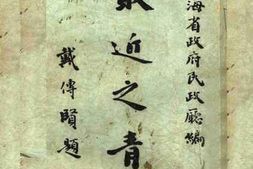 海省政府民政廳編
最近之青
戴傳賢題